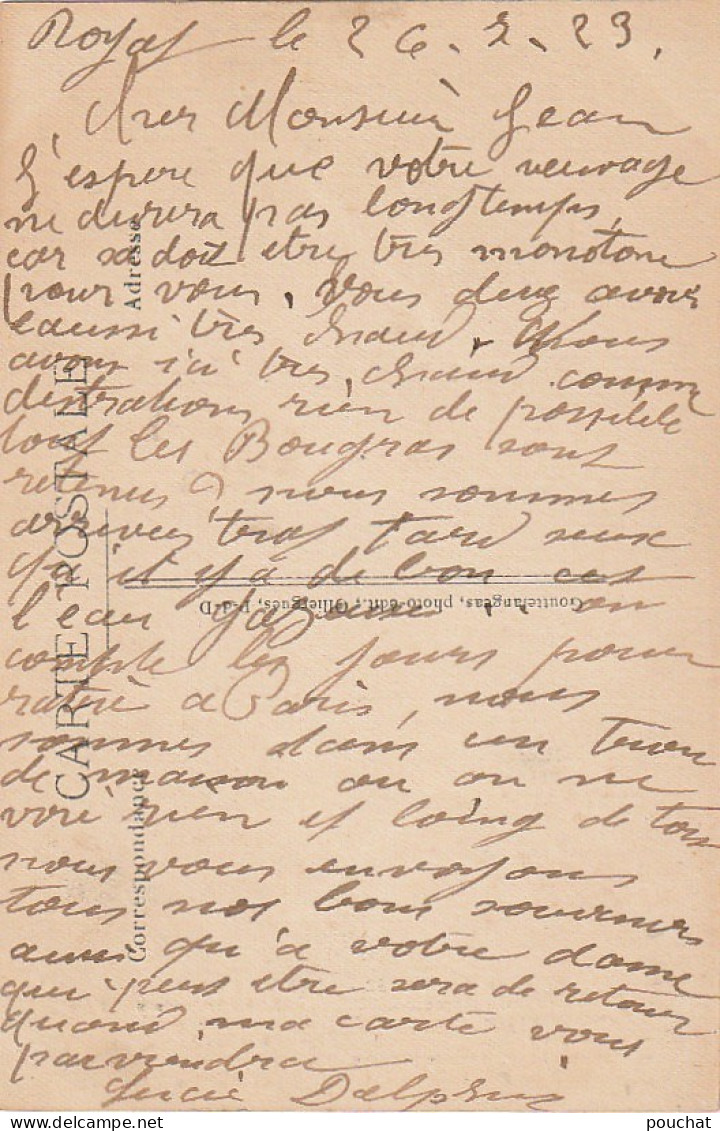 Royat le 26.7.23.
Cher Monsieur Jean
J'espere que votre veuvage
ne durera pas longtemps,
car sa doit etre très monotone
pour vous. Vous devez avoir
aussi très chaud. Nous
avons ici très chaud comme
distrations rien de possible
tout les Bougras sont
retenus nous sommes
arrives trop tard seux
qu'il y a de bon cest
l'eau Gazeuse.. on
compte les jours pour
rentré a Paris, nous
sommes dans un trou
de maison ou on ne
voie rien et loing de tous
nous vous envoyons
tous nos bons souvenirs
ainsi qu'à votre dame
qui peut etre sera de retour
quand ma carte vous
parviendra
Lucie
CARTE POSTALE
Correspondance
Adresse
Gouttefangeas, photo-édit., Olliergues, P-d-D
www.delcampe.net
pouchat